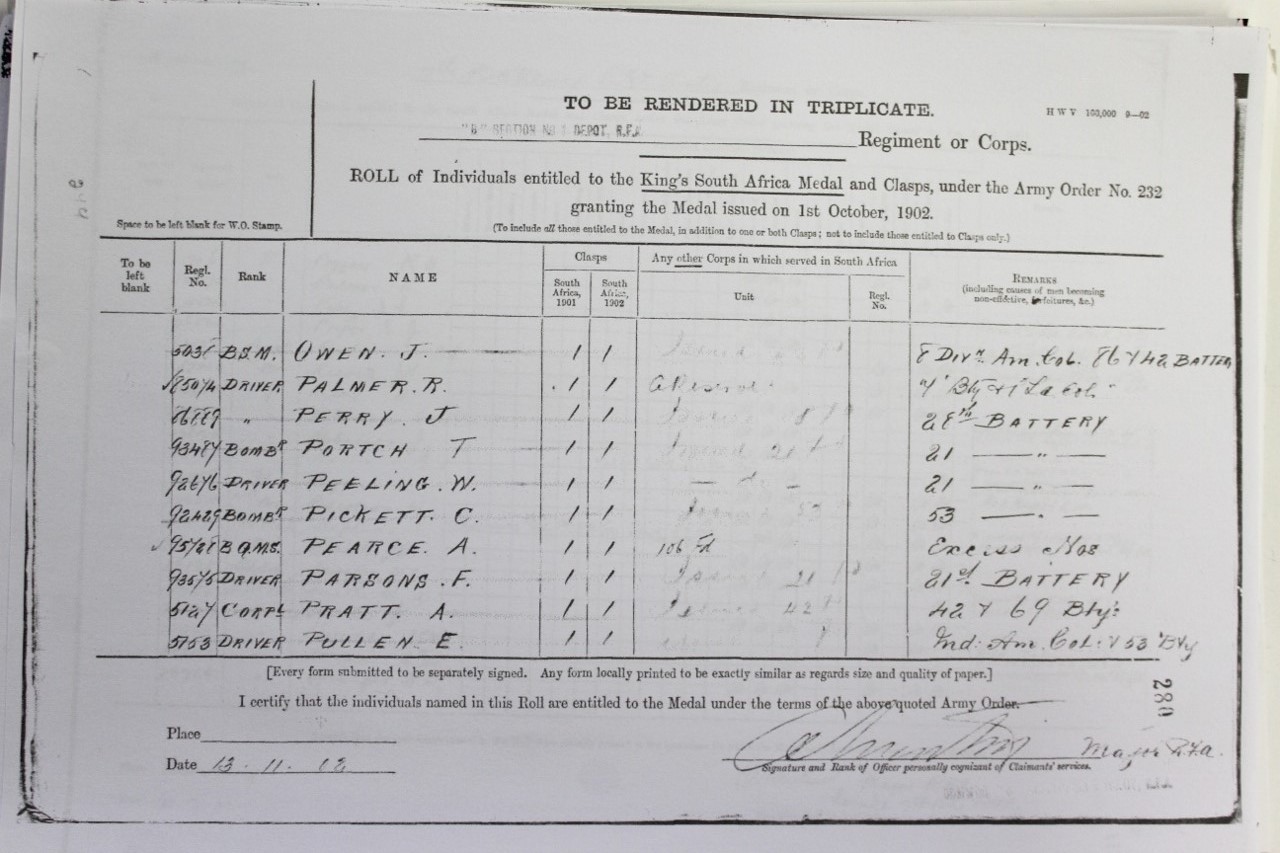 TO BE RENDERED IN TRIPLICATE.
H W V 100,000 9—02
"B" SECTION No 1 DEPOT, R.F.A. Regiment or Corps.
ROLL of Individuals entitled to the King's South Africa Medal and Clasps, under the Army Order No. 232
granting the Medal issued on 1st October, 1902.
Space to be left blank for W.O. Stamp.
(To include all those entitled to the Medal, in addition to one or both Clasps; not to include those entitled to Clasps only.)
To be left blank Regl. No. Rank NAME Clasps South Africa, 1901 South Africa, 1902 Any other Corps in which served in South Africa Unit Regl. No. REMARKS (including causes of men becoming non-effective, forfeitures, &c.)
B.S.M. OWEN. J. 1 1 8 Divn Am. Col. 86 & 42 BATTERY
DRIVER PALMER. R. 1 1 A Reserve
" PERRY. J 1 1 28th BATTERY
BOMBR PORTCH T 1 1 Issued 21st 21 — " —
DRIVER PEELING. W. 1 1 — do — 21 — " —
92429 BOMBR PICKETT. C. 1 1 53 53 — " —
B.Q.M.S. PEARCE. A. 1 1 106 Fd Excess Nos
DRIVER PARSONS. F. 1 1 21st 21st BATTERY
CORPL PRATT. A. 1 1 42 42 & 69 Bty's
5153 DRIVER PULLEN E. 1 1 Am. Col: & 53 Bty
[Every form submitted to be separately signed. Any form locally printed to be exactly similar as regards size and quality of paper.]
I certify that the individuals named in this Roll are entitled to the Medal under the terms of the above quoted Army Order.
280
Place
Major R.F.A.
Date 13. 11. 02
Signature and Rank of Officer personally cognizant of Claimants' services.